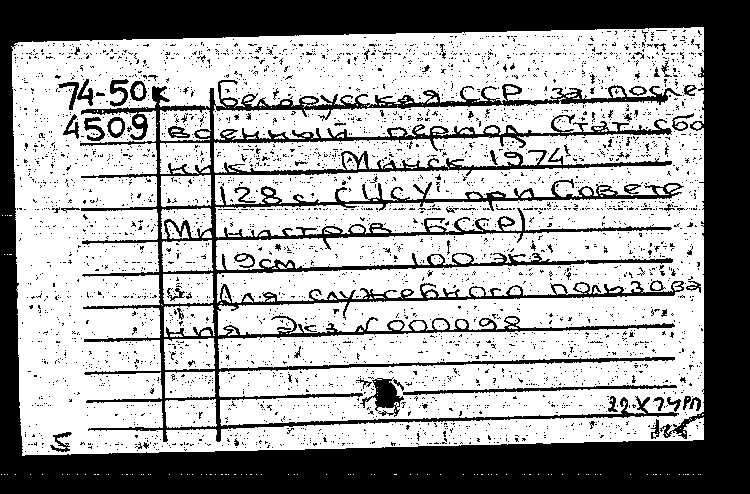 74-50к Белорусская ССР за после-
4509 военный период. Стат. сбо
ник. - Минск, 1974.
128 с. (ЦСУ при Совете
Министров БССР)
19 см. 100 экз.
Для служебного пользова
ния. Экз. № 000098
22.X.74 РП